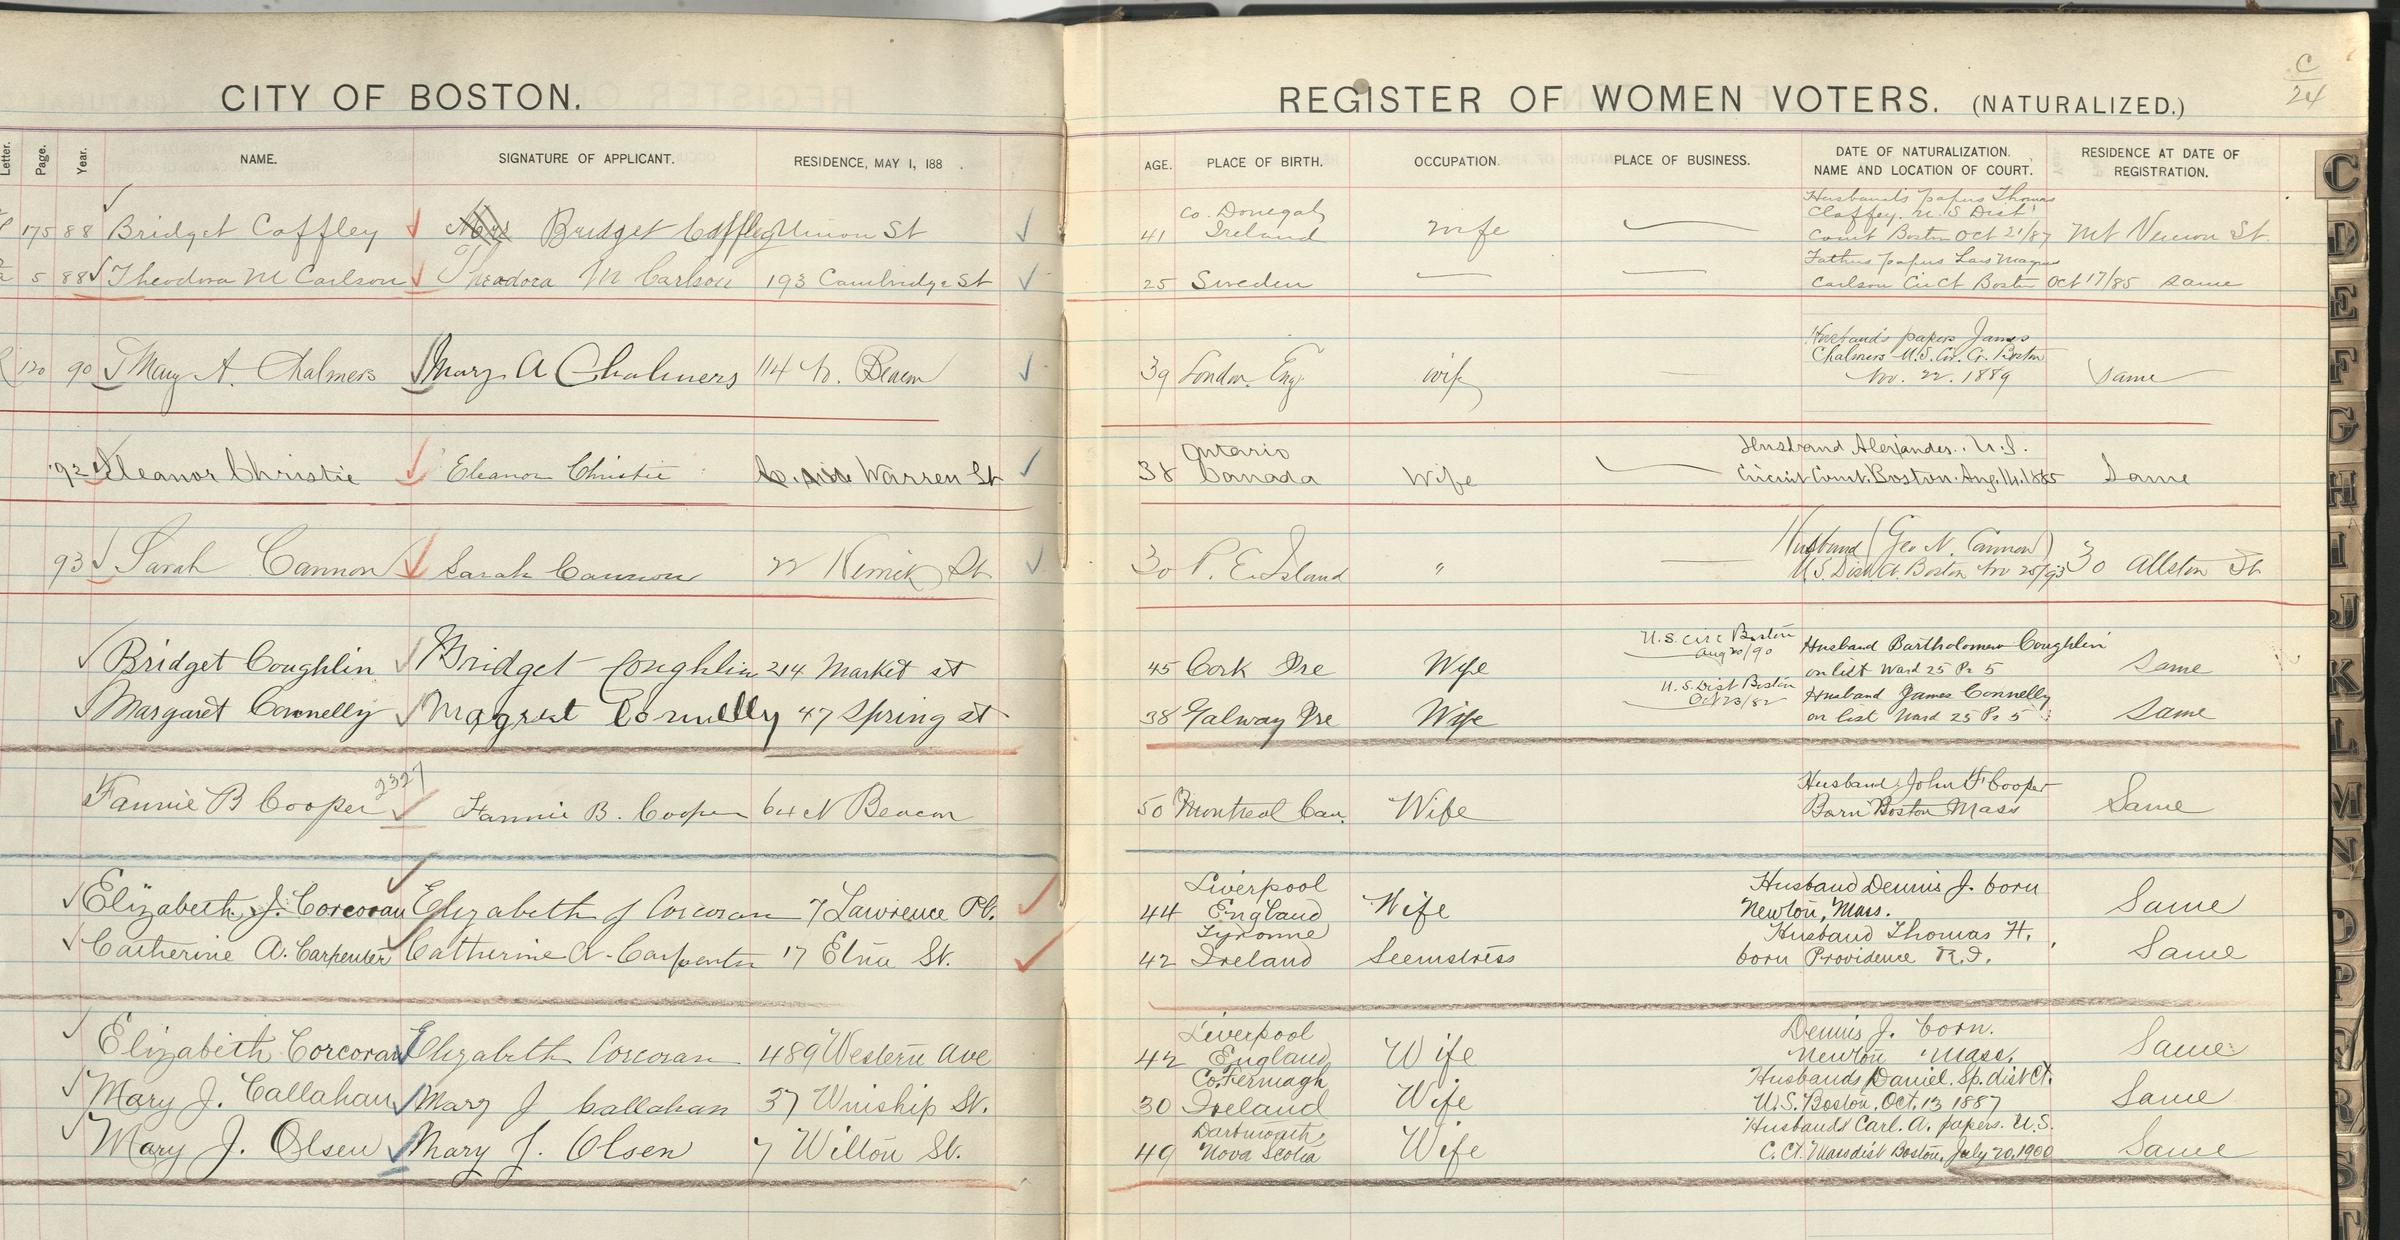 CITY OF BOSTON.
REGISTER OF WOMEN VOTERS. (NATURALIZED.)
C
24
Letter. Page. Year. NAME. SIGNATURE OF APPLICANT. RESIDENCE, MAY 1, 188 .
AGE. PLACE OF BIRTH. OCCUPATION. PLACE OF BUSINESS. DATE OF NATURALIZATION. NAME AND LOCATION OF COURT. RESIDENCE AT DATE OF REGISTRATION.
175 88 Bridget Caffley Mrs Bridget Caffley Union St
41 Co. Donegal, Ireland wife Husband's papers Thomas Claffey. U.S Dist. Court Boston Oct 21/87 Mt Vernon St.
5 88 Theodora M Carlson Theodora M Carlson 193 Cambridge St
25 Sweden Fathers papers Lars Magnus Carlson Cir Ct Boston Oct 17/85 same
120 90 Mary A. Chalmers Mary A Chalmers 114 N. Beacon
39 London, Eng. wife Husband's papers James Chalmers U.S. Cir. Ct. Boston Nov. 22. 1889 Same
'92 Eleanor Christie Eleanor Christie Warren St
38 Ontario Canada Wife Husband Alexander. U.S. Circuit Court. Boston. Aug. 14. 1885 Same
93 Sarah Cannon Sarah Cannon 22 St
30 P. E. Island " Husband (Geo N. Cannon) U.S. Dist Ct. Boston Nov 25/93 30 Allston St
Bridget Coughlin Bridget Coughlin 214 Market st
45 Cork Ire Wife U.S. Circ Boston Aug 20/90 Husband Bartholomew Coughlin on list Ward 25 Pr 5 Same
Margaret Connelly Magret Connelly 47 Spring st
38 Galway Ire Wife U.S. Dist Boston Oct 23/82 Husband James Connelly on list Ward 25 Pr 5 Same
Fannie B Cooper 2327 Fannie B. Cooper 64 N Beacon
50 Montreal Can. Wife Husband John F Cooper Born Boston Mass Same
Elizabeth J. Corcoran Elizabeth J Corcoran 7 Lawrence Pl.
44 Liverpool England Wife Husband Dennis J. born Newton, Mass. Same
Catherine A. Carpenter Catherine A. Carpenter 17 Etna St.
42 Tyronne Ireland Seemstress Husband Thomas H. born Providence R.I. Same
Elizabeth Corcoran Elizabeth Corcoran 489 Western Ave
42 Liverpool England Wife Dennis J. born. Newton Mass. Same
Mary J. Callahan Mary J Callahan 37 Winship St.
30 Co. Fermagh, Ireland Wife Husbands Daniel. Sp. dist Ct. U.S. Boston, Oct. 13 1887 Same
Mary J. Olsen Mary J. Olsen 7 Wilton St.
49 Dartmouth, Nova Scotia Wife Husbands Carl. A. papers. U.S. C. Ct. Mass dist Boston, July 20, 1900 Same
C
D
E
F
G
H
I
J
K
L
M
N
O
P
Q
R
S
T